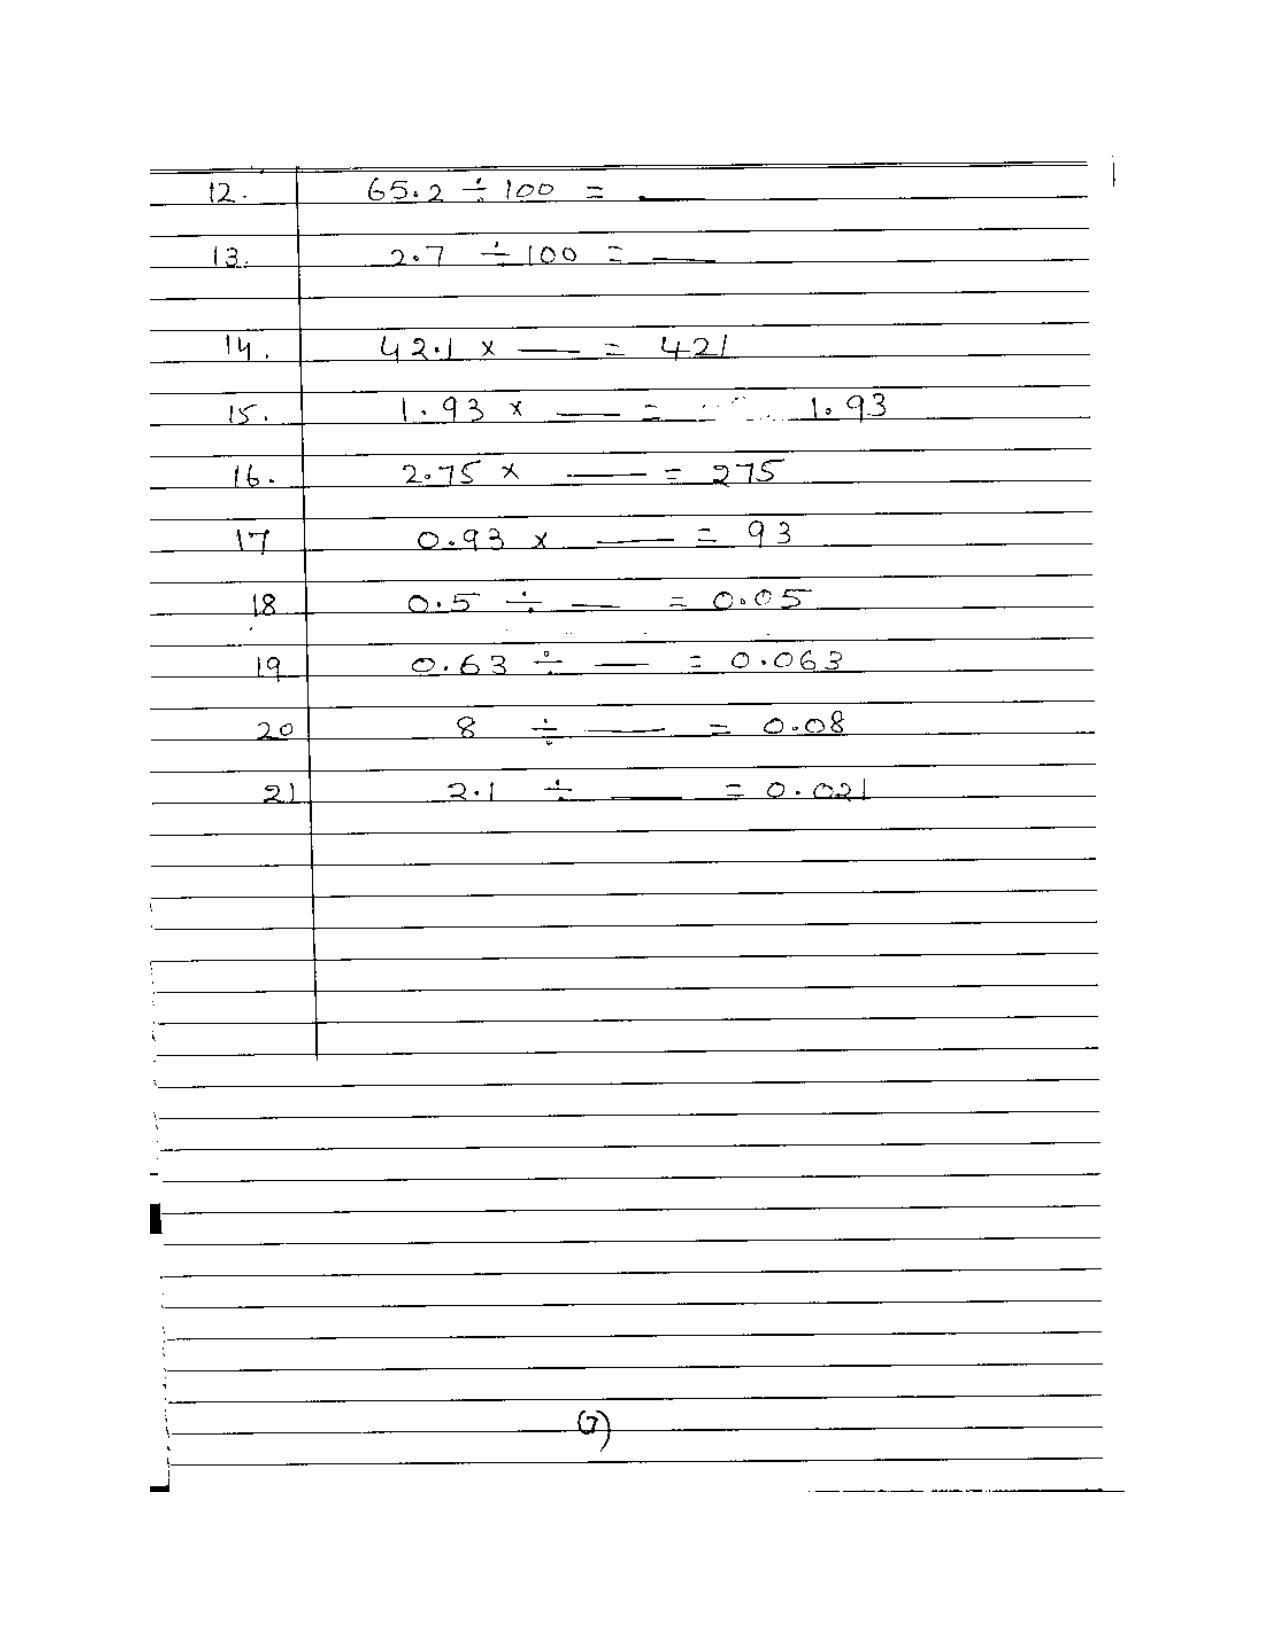 12. 65.2 ÷ 100 = ___
13. 2.7 ÷ 100 = ___
14. 42.1 × ___ = 421
15. 1.93 × ___ = 1.93
16. 2.75 × ___ = 275
17 0.93 × ___ = 93
18 0.5 ÷ ___ = 0.05
19 0.63 ÷ ___ = 0.063
20 8 ÷ ___ = 0.08
21 2.1 ÷ ___ = 0.021
(7)